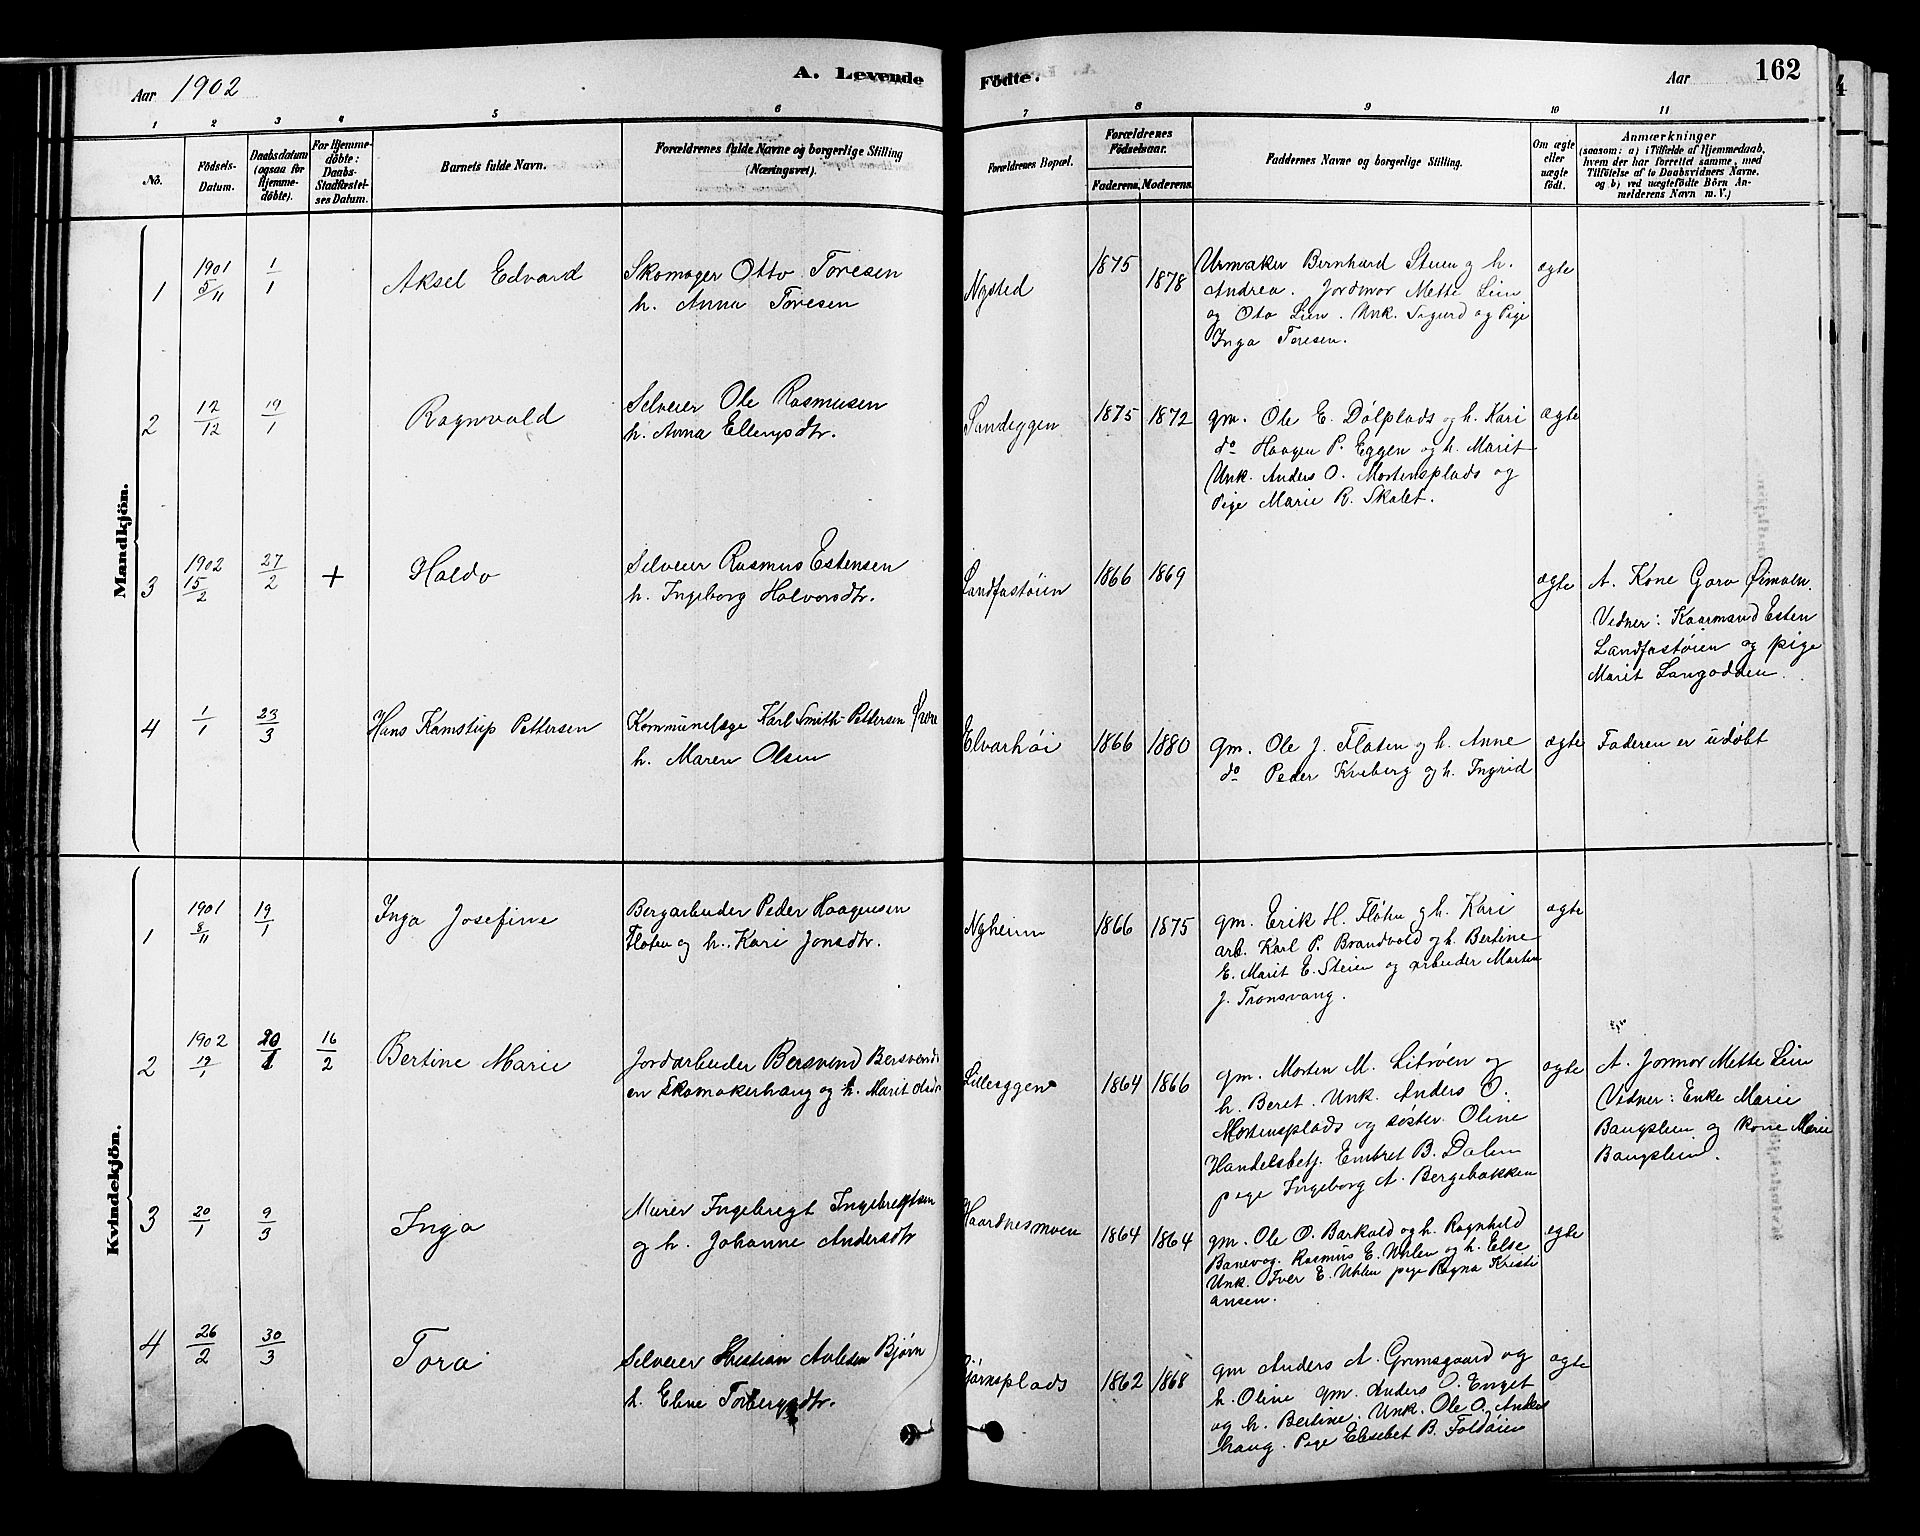 Aar 1902
A. Levende Födte.
Aar 162
1 2 3 4 5 6 7 8 9 10 11
No.
Födsels-Datum.
Daabsdatum (ogsaa for Hjemmedöbte).
For Hjemmedöbte: Daabs-Stadfæstelses Datum.
Barnets fulde Navn.
Forældrenes fulde Navne og borgerlige Stilling
(Næringsvei).
Forældrenes Bopæl.
Forældrenes Födselsaar.
Faderens. Moderens.
Faddernes Navne og borgerlige Stilling.
Om ægte eller uægte födt.
Anmærkninger
(saasom: a) i Tilfælde af Hjemmedaab,
hvem der har forrettet samme, med
Tilföielse af to Daabsvidners Navne,
og b) ved uægtefödte Börn An-
melderens Navn m. V.)
Mandkjön.
1
1901 5/11
1/1
Aksel Edvard
Skomager Otto Toresen
h. Anna Toresen
Nysted
1875 1878
Urmaker Bernhard Steien og h.
Andrea. Jordmor Mette Lien
og Oto Lien. Unk. Sigurd og Pige
Inga Toresen.
ægte
2
12/12
19/1
Ragnvald
Selveier Ole Rasmusen
h. Anna Ellengsdtr.
Sandeggen
1875 1872
gm. Ole E. Dølplads og h. Kari
do Haagen P. Eggen og h. Marit
Unk. Anders O. Mortensplads og
Pige Marie R. Skalet.
ægte
3
1902 15/2
27/2
+
Haldo
Selveier Rasmus Estensen
h. Ingeborg Halvorsdtr.
Landfastøien
1866 1869
ægte
A. Kone Goro Øimoen.
Vidner: Kaarmand Esten
Landfastøien og pige
Marit Langodden.
4
1/1
23/3
Hans Kamstrup Pettersen
Kommunelæge Karl Smith-Pettersen
h. Maren Olsen
Elvarhøi
1866 1880
gm. Ole J. Floten og h. Anne
do Peder Kveberg og h. Ingrid
ægte
Faderen er udøbt
Kvindekjön.
1
1901 8/11
19/1
Inga Josefine
Bergarbeider Peder Haagensen
Fløten og h. Kari Jonsdtr.
Nyheim
1866 1875
gm. Erik H. Fløten og h. Kari
arb. Karl P. Brandvold og h. Bertine
E. Marit E. Steien og arbeider Morten
J. Tronsvang.
ægte
2
1902 19/1
20/1
16/2
Bertine Marie
Jordarbeider Bersvend Bersvends
en Skomakerhaug og h. Marit Olsdtr
Lilleeggen
1864 1866
gm. Morten M. Litrøen og
h. Beret. Unk. Anders O.
Mortensplads og søster Oline
Handelsbetj. Embret B. Dalen
pige Ingeborg A. Bergebakken
ægte
A. Jormor Mette Lien
Vidner: Enke Marie
Bangslien og kone Marie
Bangslien.
3
20/1
9/3
Inga
Murer Ingebrigt Ingebrigtsen
og h. Johanne Andersdtr
Haardnesmoen
1864 1864
gm. Ole O. Barkald og h. Ragnhild
Banevog. Rasmus E. Uhlen og h. Else
Unk. Iver E. Uhlen pige Ragna Kristi
ansen.
egte
4
26/2
30/3
Tora
Selveier Kristian Avlesen Bjørn
h. Eline Torbergsdtr.
Bjørnsplads
1862 1868
gm Anders A. Grimsgaard og
h. Oline gm. Anders O. Enget
og h. Bertine. Unk. Ole O. Anders
haug. Pige Elisebet B. Foldøien
ægte